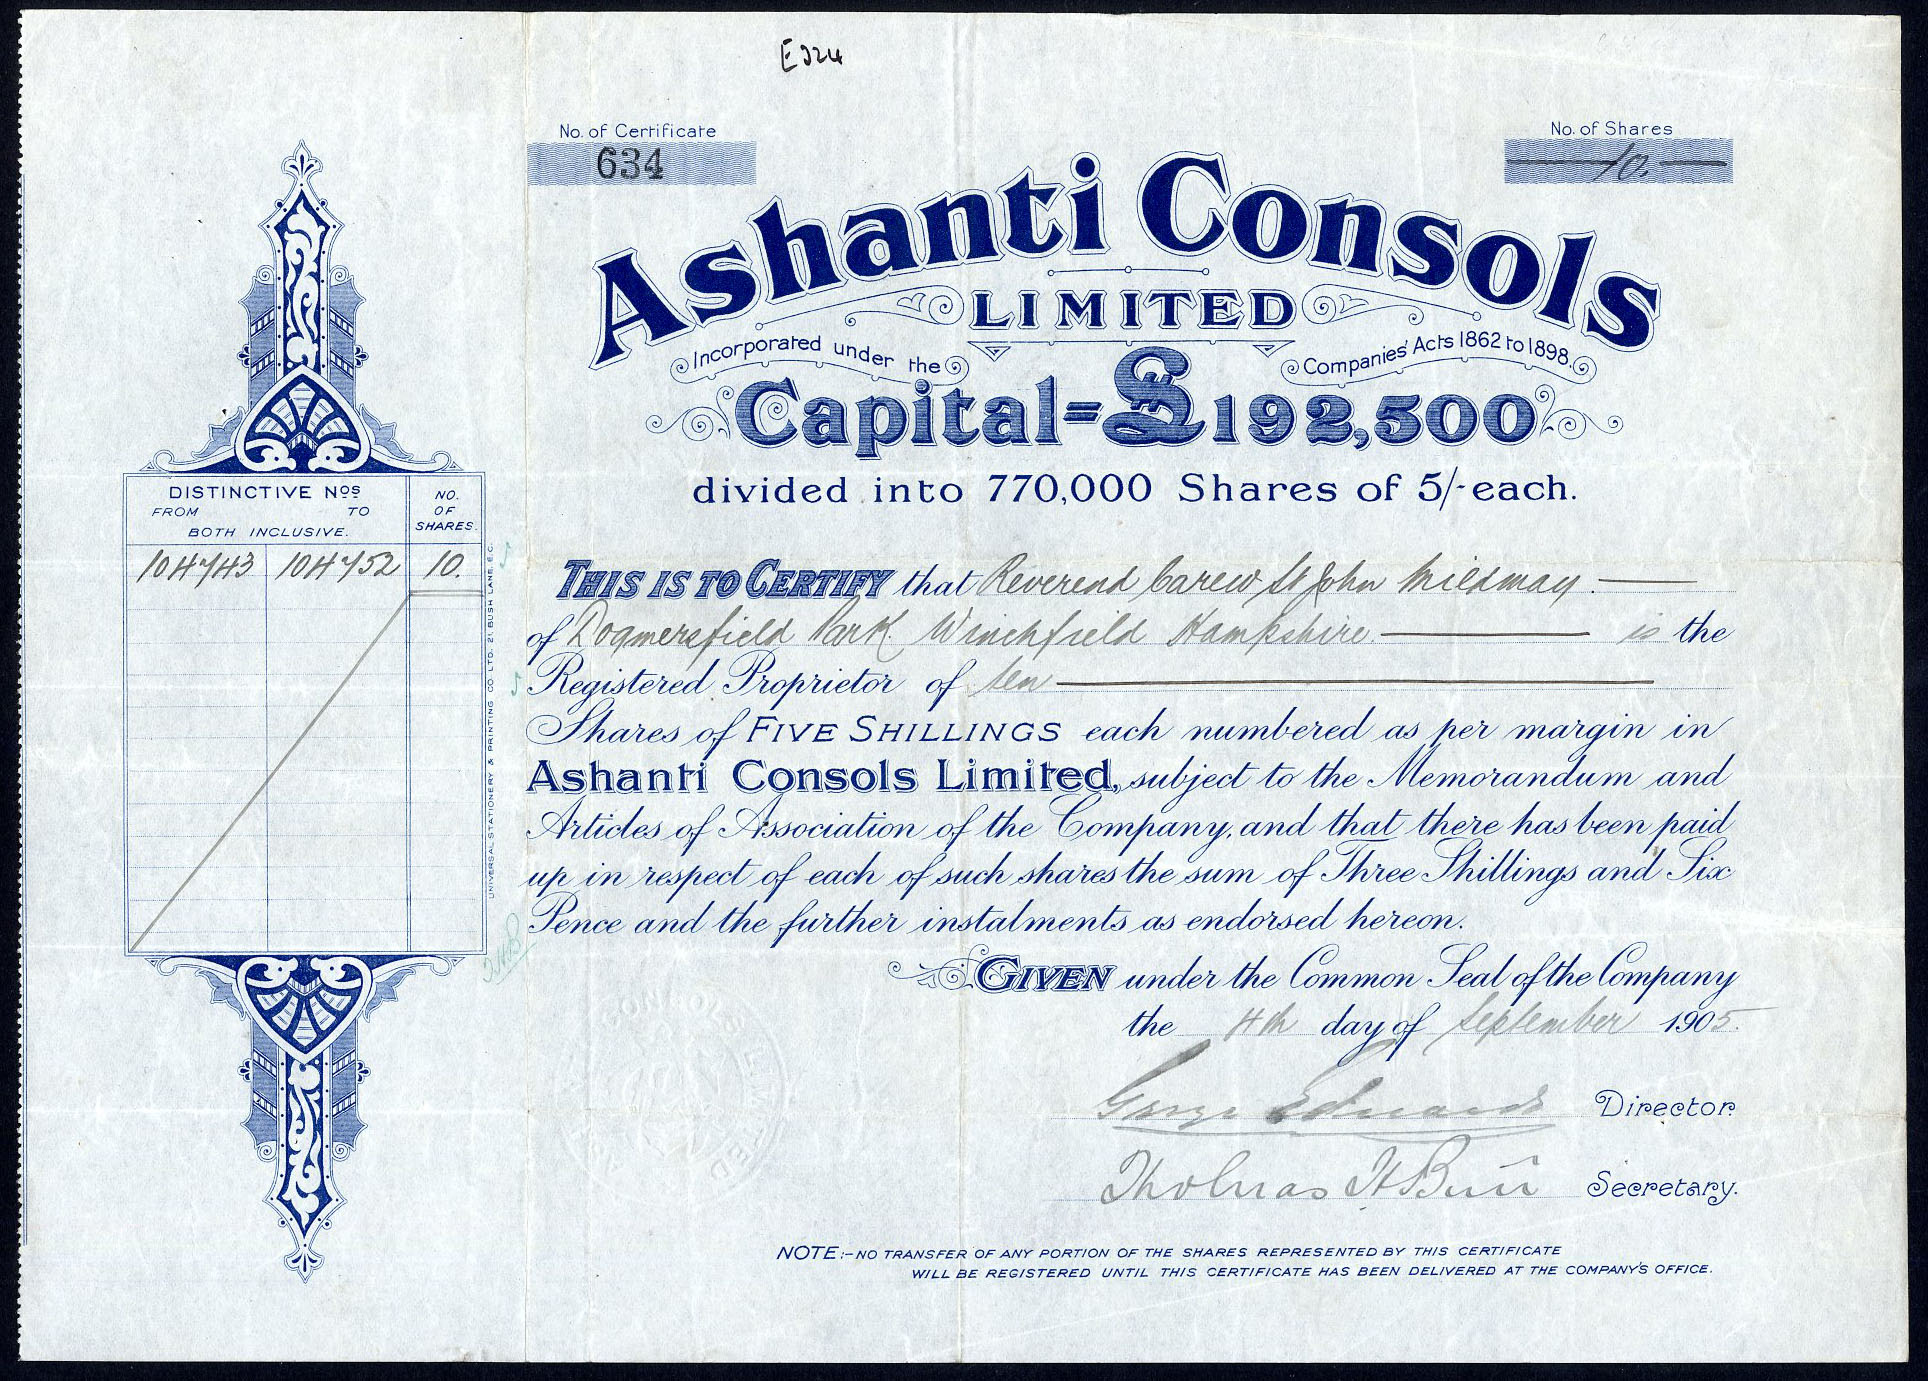 E324
No. of Certificate
634
No. of Shares
10.
Ashanti Consols
LIMITED
Incorporated under the Companies' Acts 1862 to 1898.
Capital = £192,500
divided into 770,000 Shares of 5/- each.
DISTINCTIVE Nos
FROM TO
BOTH INCLUSIVE.
NO. OF SHARES.
104743 104752 10.
UNIVERSAL STATIONERY & PRINTING CO LTD. 21 BUSH LANE. E.C.
THIS IS TO CERTIFY that Reverend Carew St John Mildmay.
of Dogmersfield Park. Winchfield Hampshire. is the
Registered Proprietor of ten
Shares of FIVE SHILLINGS each numbered as per margin in
Ashanti Consols Limited, subject to the Memorandum and
Articles of Association of the Company, and that there has been paid
up in respect of each of such shares the sum of Three Shillings and Six
Pence and the further instalments as endorsed hereon.
GIVEN under the Common Seal of the Company
the 4th day of September 1905.
George Edwards Director.
Thomas H Secretary.
NOTE:- NO TRANSFER OF ANY PORTION OF THE SHARES REPRESENTED BY THIS CERTIFICATE
WILL BE REGISTERED UNTIL THIS CERTIFICATE HAS BEEN DELIVERED AT THE COMPANY'S OFFICE.